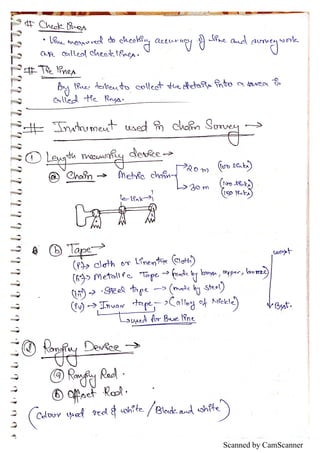 # Check lines
• Line measured to checking accuracy of line and survey work
are called check lines.
# Tie lines
Any line taken to collect the details into a survey is
called tie lines.
# Instrument used in chain Survey →
① Length measuring device →
ⓐ Chain → Metric chain → 20 m (100 links)
→ 30 m (100 links)
(150 links)
←link→
ⓑ Tape →
(i) → cloth or Linen tape (cloth)
worst
(ii) → Metallic Tape → (made by brass, copper, bronze)
(iii) → Steel tape → (made by steel)
(iv) → Invar tape → (alloy of Nickle)
Best.
→ used for Base line
② Ranging Device →
ⓐ Ranging Rod.
ⓑ offset Rod.
(Colour used red & white / Black and white)
Scanned by CamScanner